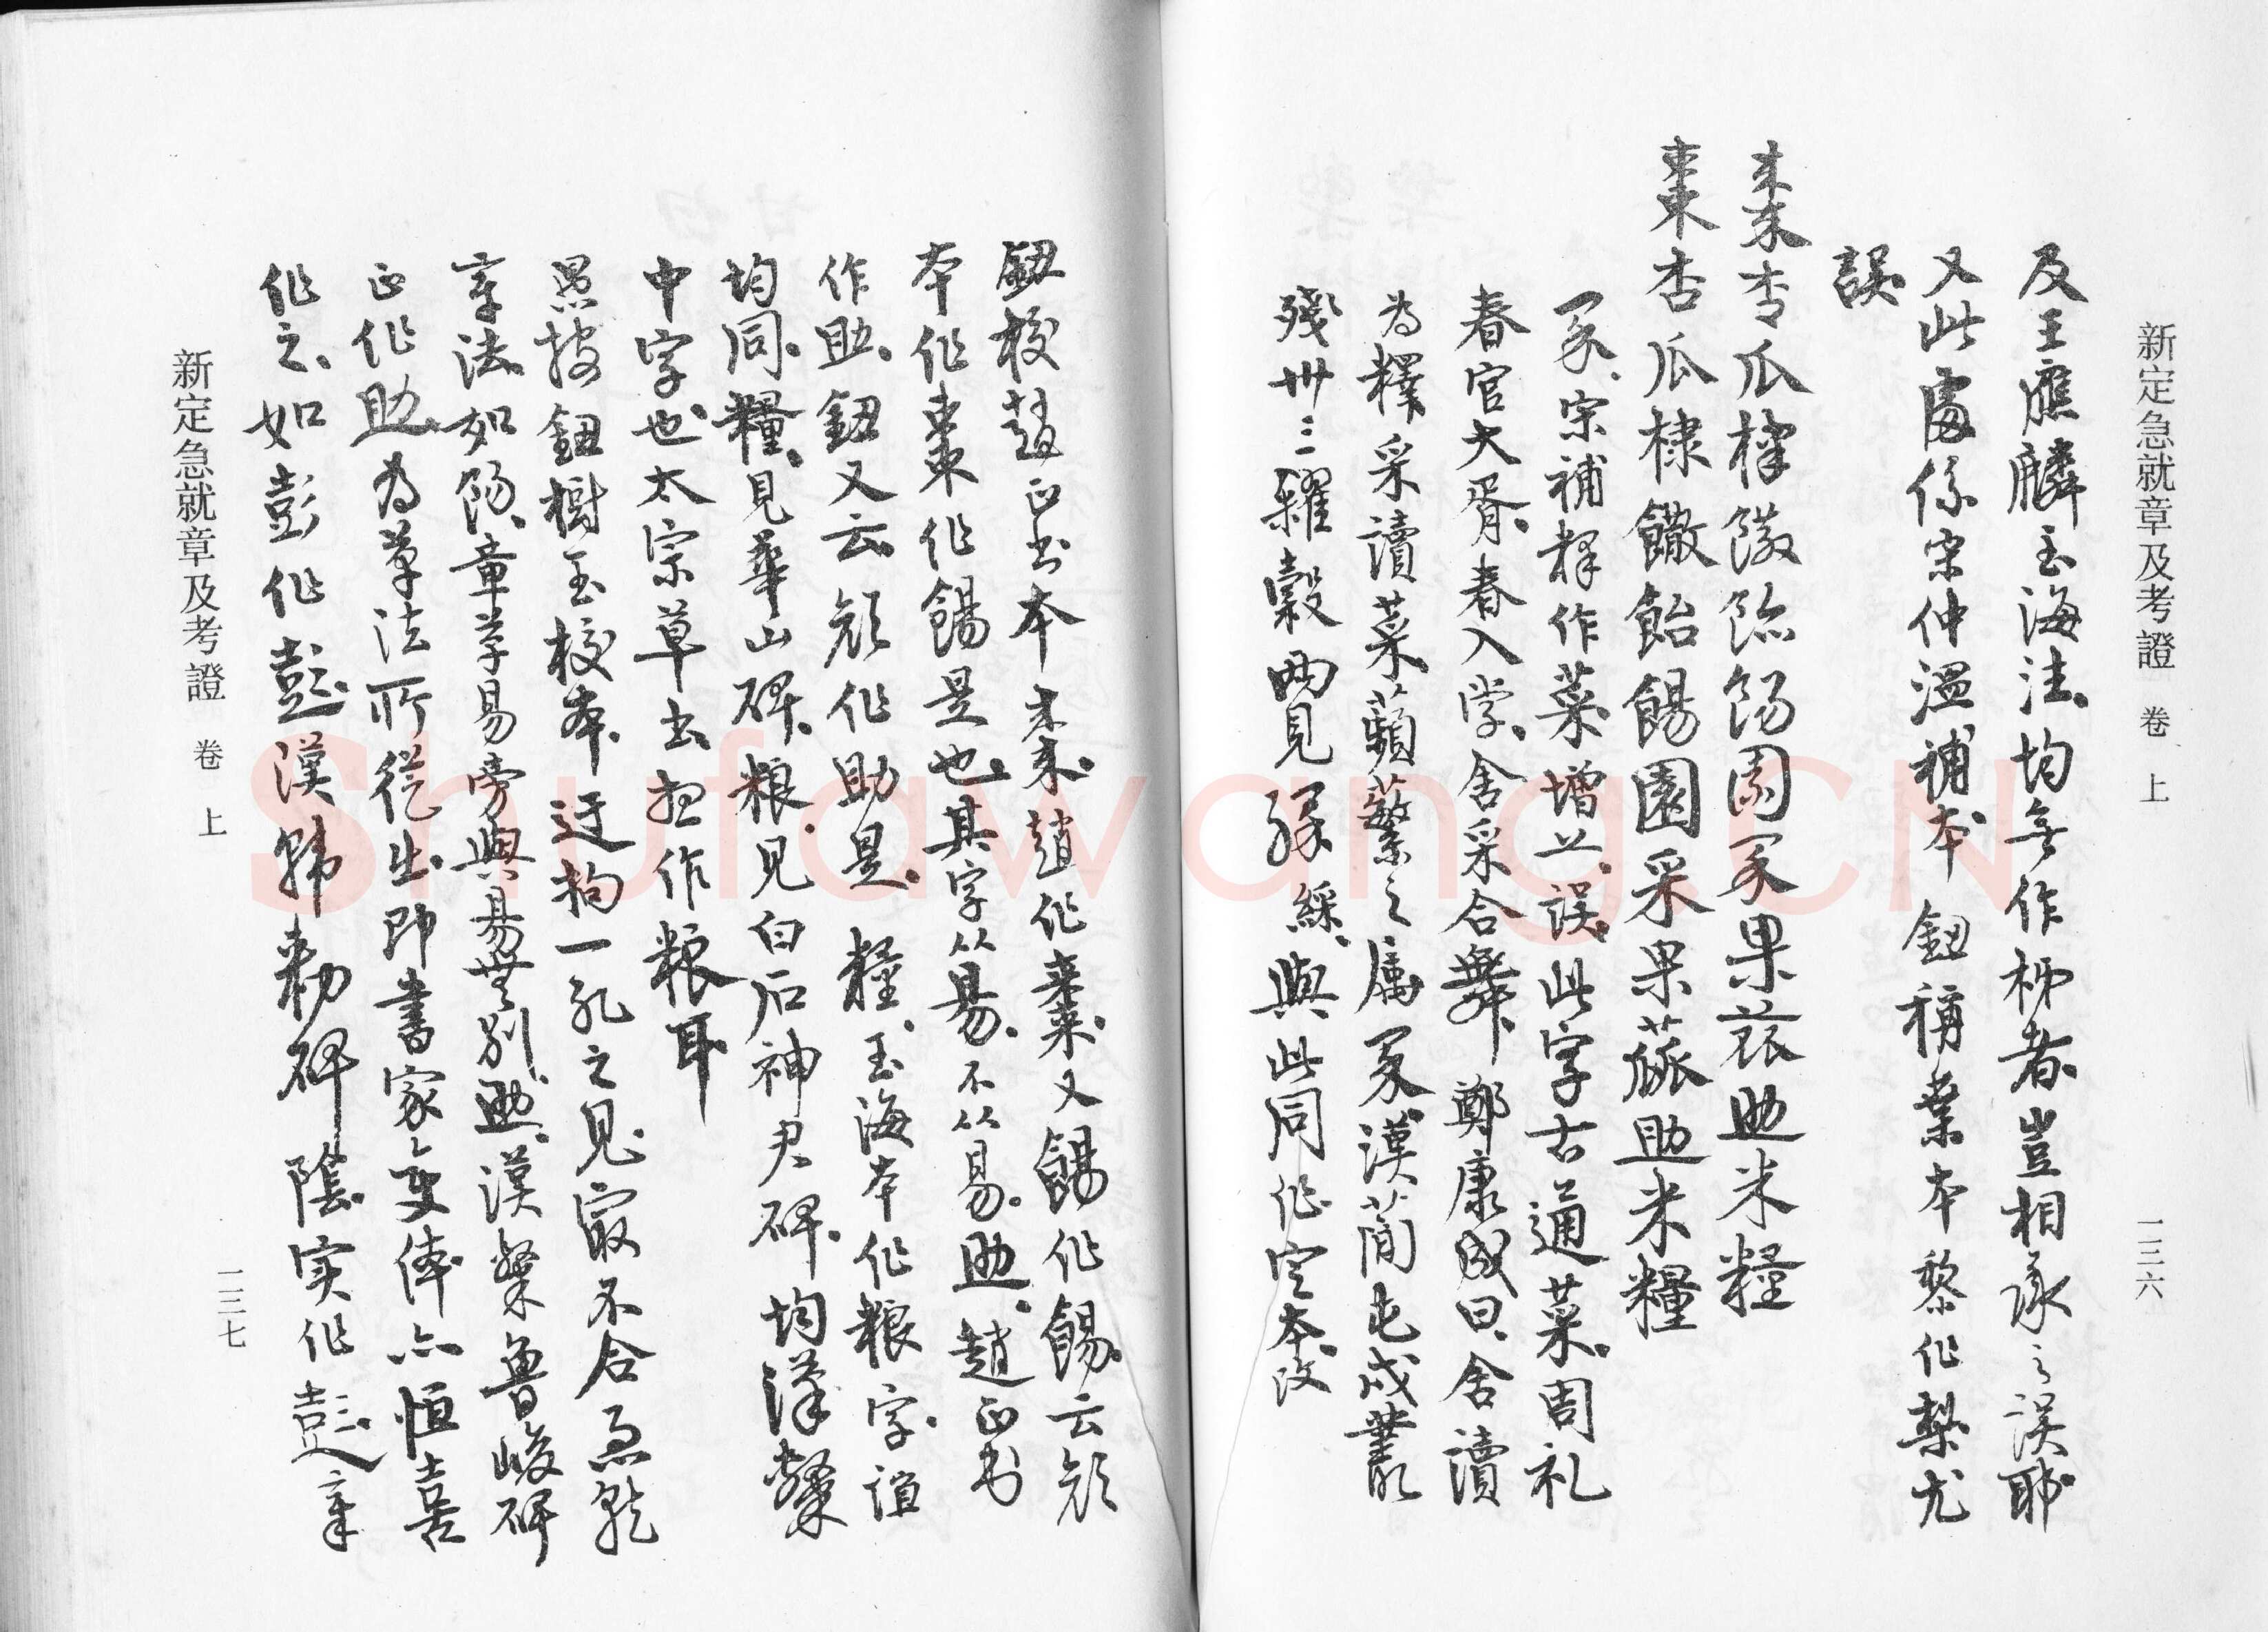 新定急就章及考證 卷上 一三六
及王應麟玉海注均無作柹者豈相承之误耶
又此處係宋仲溫補本 鈕稱葉本黎作梨尤
誤
棗杏瓜棣饊飴餳園采果蓏助米糧
棗杏瓜棣饊飴餳園采果蓏助米糧
采宋補释作菜增艹误此字古通菜周礼
春官大胥春入学舍采合舞郑康成曰舍讀
為釋采讀菜蘋蘩之属 采漢蕳屯戍叢
殘卅三糴糓两見 綵與此同作空本改
鈕校趙正书本棗趙作棗又餳作餳云顔
本作棗作餳是也其字从昜不从易助趙正书
作助鈕又云顔作助是 糧玉海本作粮字誼
均同糧見華山碑粮见白石神君碑均漢隸
中字也太宗草书担作粮耳
愚按鈕樹玉校本迂拘一孔之見寂不合急就
章法如餳章草易旁與昜無别助漢隸鲁峻碑
正作助为草法所從出即書家变体亦恒喜
作之如彭作彭漢韩勅碑陰实作彭章
新定急就章及考證 卷上 一三七
Shufawang.CN